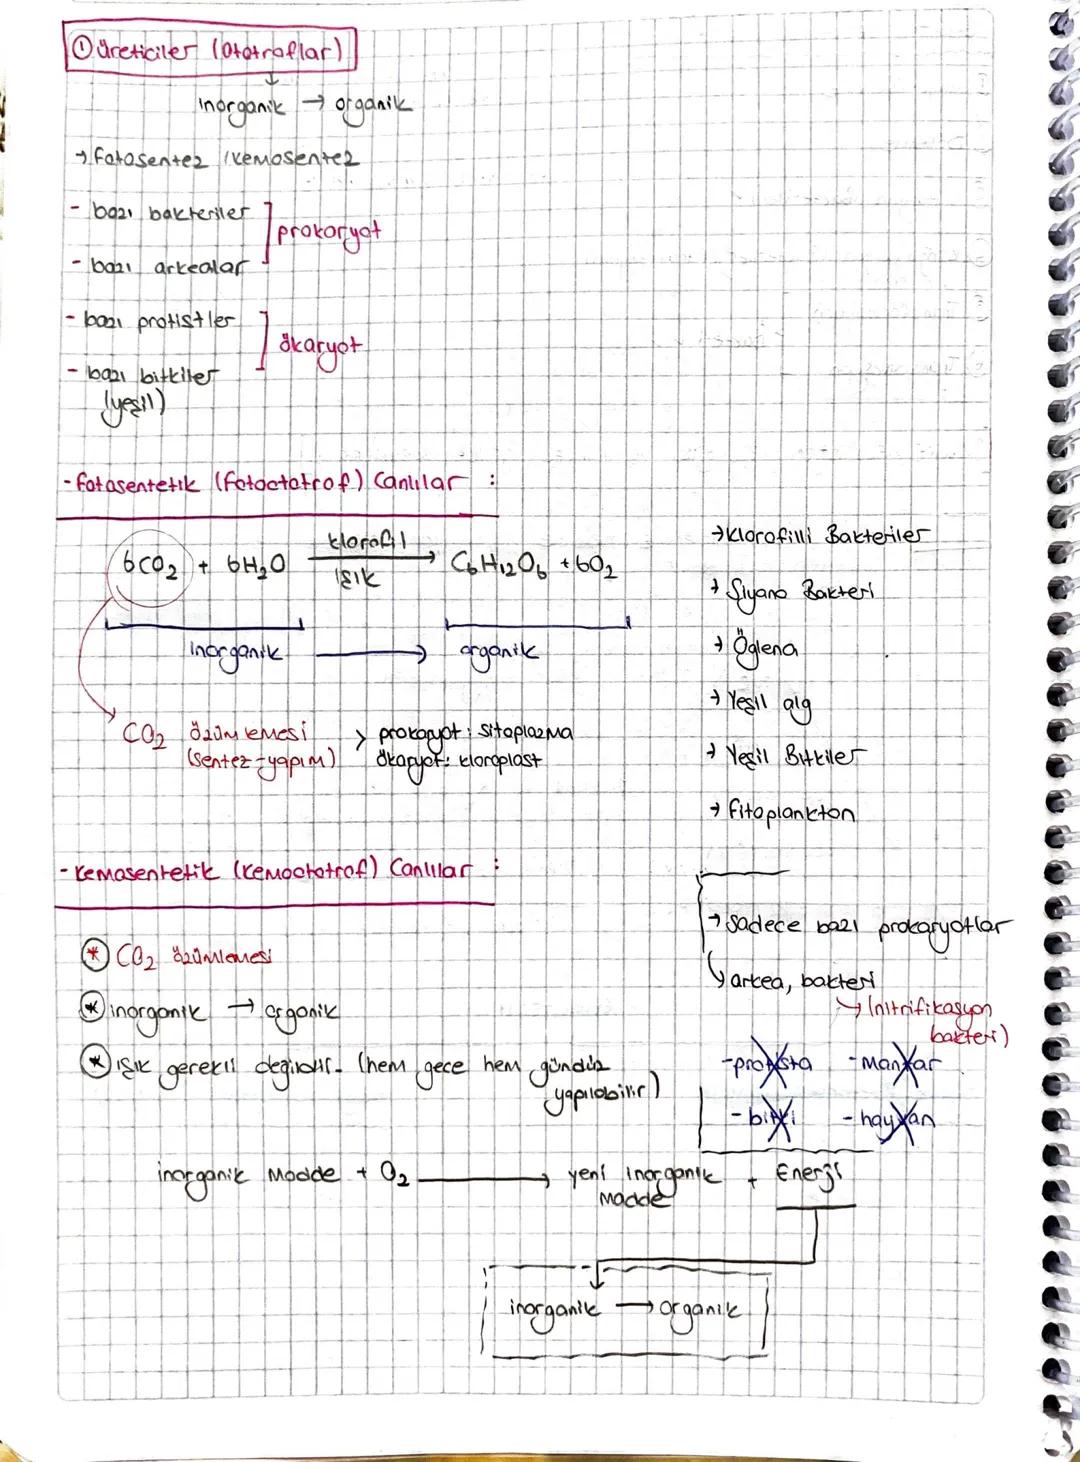 ① üreticiler (ototroflar)
↓
inorganik → organik
→ fotosentez / kemosentez
- bazı bakteriler
prokaryot
- bazı arkealar
- bazı protistler
ökaryot
- bazı bitkiler
(yeşil)
- fotosentetik (fotoototrof) Canlılar :
6CO₂ + 6H₂O klorofil ışık → C₆H₁₂O₆ + 6O₂
inorganik → organik
CO₂ özümlemesi > prokaryot : sitoplazma
(sentez-yapım) ökaryot : kloroplast
→ klorofilli Bakteriler
→ Siyano Bakteri
→ Öglena
→ Yeşil alg
→ Yeşil Bitkiler
→ fitoplankton
- kemosentetik (kemoototrof) Canlılar :
* CO₂ özümlemesi
* inorganik → organik
* ışık gerekli değildir. (hem gece hem gündüz
yapılabilir)
→ sadece bazı prokaryotlar
↳ arkea, bakteri
→ (nitrifikasyon
bakteri)
- protista - mantar
- bitki - hayvan
inorganik madde + O₂ → yeni inorganik + Enerji
madde
inorganik → organik